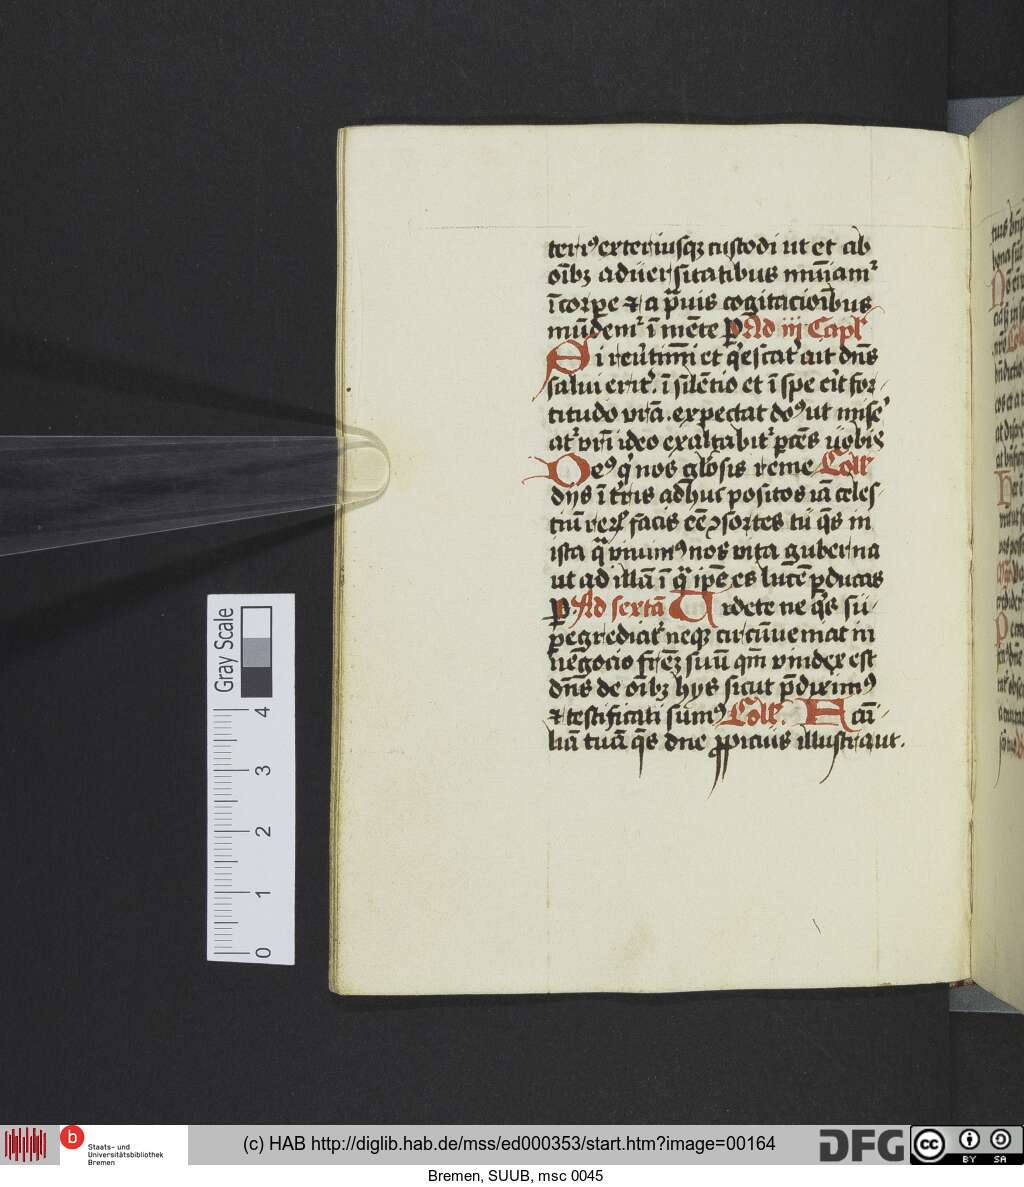 terꝰ exteriusqꝫ custodi ut et ab
oı̄bꝫ aduersitatibus mūiamʳ
ī corpe ⁊ a p̄uis cogitacioı̄bus
mūdemʳ ī mēte ꝑ Ad iij Capłʳ
Si reūtimı̄ et q̄escatʳ ait dn̄s
salui eritʳ. ī silētio et ī spe eͥt for
titudo vrā. expectat doꝰ ut miseʳ
atʳ vrı̄ ideo exaltabitʳ ꝑcēs uobis
Deꝰ qͥ nos glōsis reme Coll
dijs ī tr̄is adhuc positos iā celes
tiū reꝝ facis eē ꝯsortes tu q̄s in
ista qͣ viuimꝰ nos vita guberna
ut ad illā ī qͣ ip̄e es lucē ꝑducas
ꝑ. Ad sextā Uidete ne q̄s su
pegrediatʳ neqꝫ circūueniat in
negocio fr̄eꝫ suū qm̄ vindex est
dn̄s de oı̄bꝫ hijs sicut p̄diximꝰ
⁊ testificati sumꝰ Coll. Acū
liā tuā q̄s dn̄e ꝓpicius illustr aut.
Gray Scale
4
3
2
1
0
b
Staats- und
Universitätsbibliothek
Bremen
(c) HAB http://diglib.hab.de/mss/ed000353/start.htm?image=00164
DFG
cc
BY SA
Bremen, SUUB, msc 0045